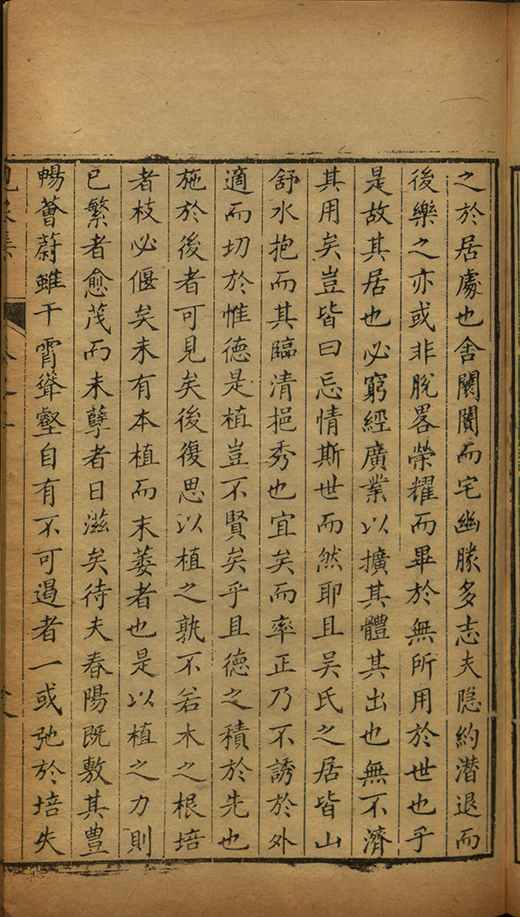 之於居處也舍闤闠而宅幽勝多志夫隐約潜退而
後樂之亦或非脫畧榮耀而畢於無所用於世也乎
是故其居也必窮經廣業以擴其體其出也無不濟
其用矣豈皆曰忘情斯世而然耶且吴氏之居皆山
舒水抱而其臨清挹秀也宜矣而率正乃不誘於外
適而切於惟德是植豈不賢矣乎且德之積於先也
施於後者可見矣後復思以植之孰不若木之根培
者枝必偃矣未有本植而末萎者也是以植之力則
已繁者愈茂而未孽者日滋矣待夫春陽既敷其豊
暢薈蔚雖干霄聳壑自有不可遏者一或弛於培失